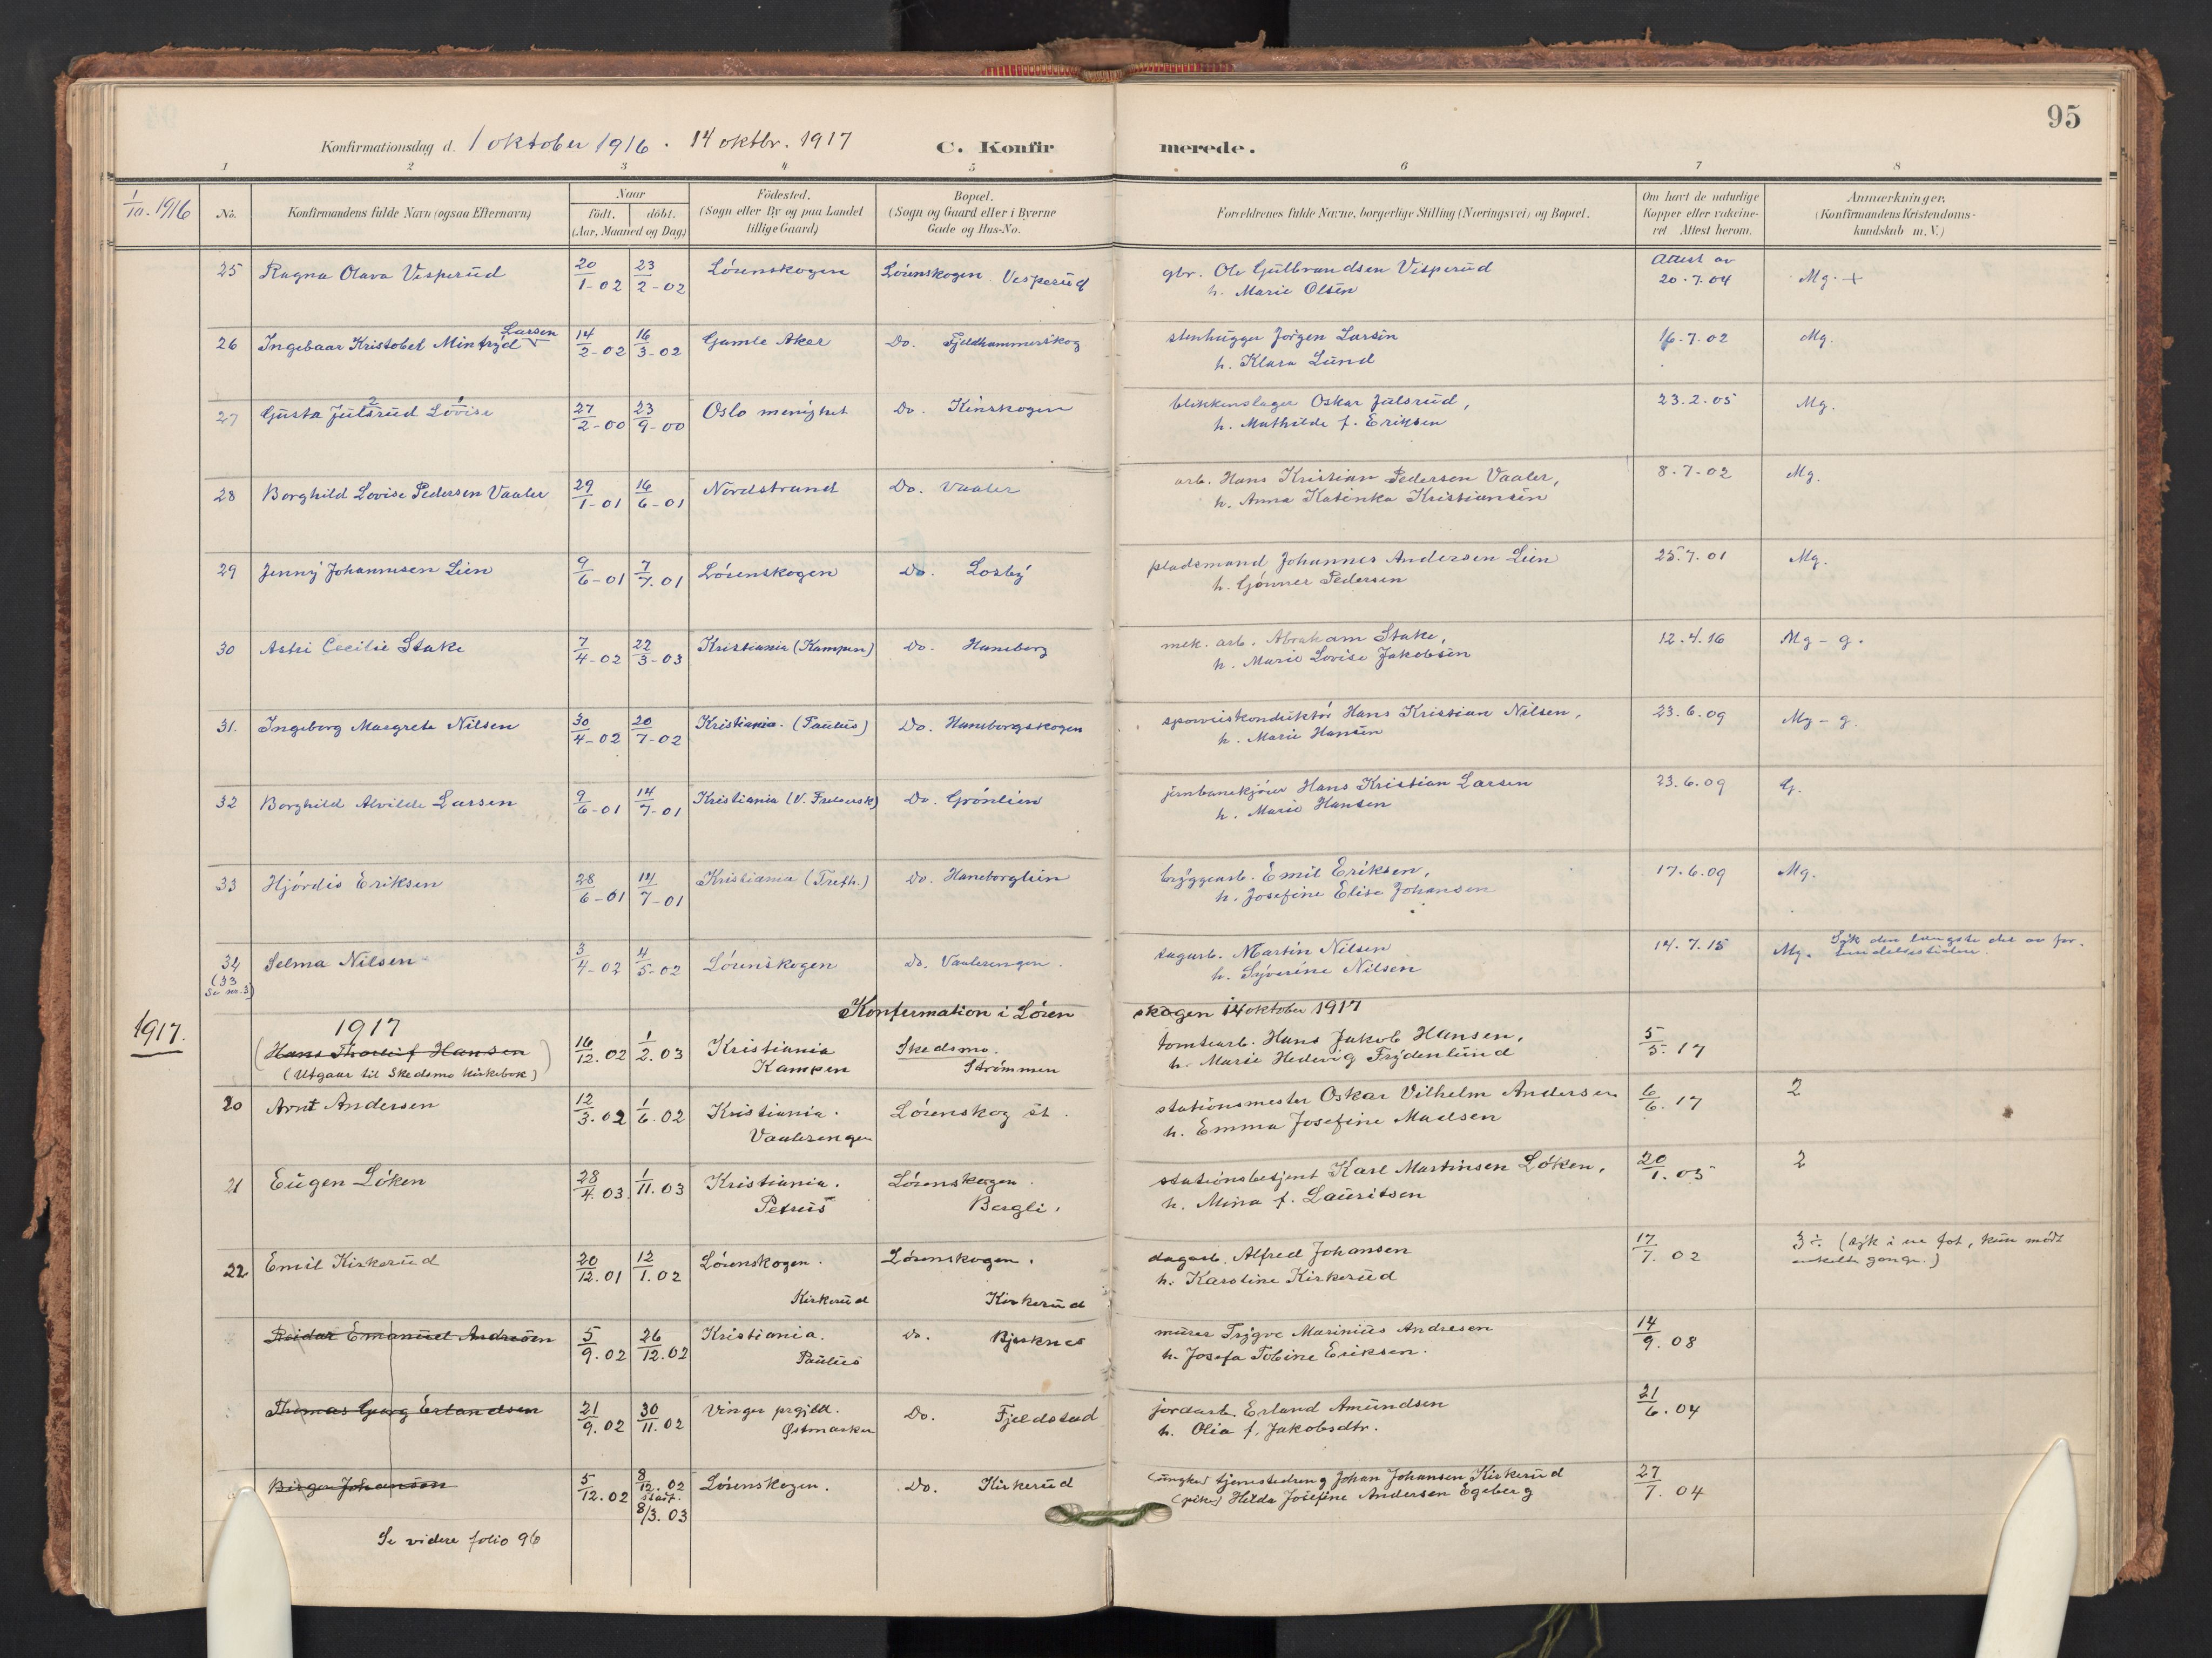 95
Konfirmationsdag d. 1 oktober 1916 . 14 oktbr. 1917 C. Konfirmerede.
1 2 3 4 5 6 7 8
1/10. 1916
No. Konfirmandens fulde Navn (ogsaa Efternavn)
Naar
födt. döbt.
(Aar, Maaned og Dag)
Födested.
(Sogn eller By og paa Landet
tillige Gaard)
Bopæl.
(Sogn og Gaard eller i Byerne
Gade og Hus-No.
Forældrenes fulde Navne, borgerlige Stilling (Næringsvei) og Bopæl.
Om havt de naturlige
Kopper eller vakcine-
ret Attest herom.
Anmærkninger,
(Konfirmandens Kristendoms-
kundskab m. V.)
25 Ragna Olava Vesperud 20/1-02 23/2-02 Lörenskogen Lörenskogen Vesperud gbr. Ole Gulbrandsen Visperud Attest av 20.7.04 Mg. +
h. Marie Olsen
26 Ingebaar Kristobel Mintryd Larsen 14/2-02 16/3-02 Gamle Aker Do. Fjeldhammerskog stenhugger Jörgen Larsen 16.7.02 Mg.
h. Klara Lund
27 Gusta Julsrud 2 Lovise 1 27/2-00 23/9-00 Oslo menighet Do. Kinskogen blikkenslager Oskar Julsrud, 23.2.05 Mg.
h. Mathilde f. Eriksen
28 Borghild Lovise Pedersen Vaaler 29/1-01 16/6-01 Nordstrand Do. Vaaler arb. Hans Kristian Pedersen Vaaler, 8-7-02 Mg.
h. Anna Katinka Kristiansen
29 Jenny Johannesen Lien 9/6-01 7/7.01 Lörenskogen Do. Losby pladsmand Johannes Andersen Lien 25.7.01 Mg.
h. Gönner Pedersen
30 Astri Cecilie Stake 7/4-02 22/3-03 Kristiania (Kampen) Do. Haneborg mek. arb. Abraham Stake, 12.4.16 Mg - g.
h. Marie Lovise Jakobsen
31. Ingeborg Margrete Nilsen 30/4-02 20/7-02 Kristiania. (Paulus) Do. Haneborgskogen sporveiskonduktör Hans Kristian Nilsen, 23.6.09 Mg - g.
h. Marie Hansen
32 Borghild Alvilde Larsen 9/6-01 14/7-01 Kristiania (V. Frelsersk) Do. Grönlien jernbanekjörer Hans Kristian Larsen 23.6.09 G.
h. Marie Hansen
33 Hjördis Eriksen 28/6-01 14/7-01 Kristiania (Trefh.) Do. Haneborglien bryggearb. Emil Eriksen, 17.6.09 Mg.
h. Josefine Elise Johansen
34 Selma Nilsen 3/4-02 4/5-02 Lörenskogen Do. Vaalerengen. dagarb. Martin Nilsen 14.7.15 Mg. Syk den længste del av for-
(33 Se nr. 3) h. Syverine Nilsen
Konfermation i Lörenskogen 14 oktober 1917
1917.
1917
(Hans Thorleif Hansen) 16/12.02 1/2.03 Kristiania Skedsmo. tomtearb. Hans Jakob Hansen, 5/5.17
(Utgaar til Skedsmo kirkebok) Kampen Strömmen h. Marie Hedevig Frydenlund
20 Arnt Andersen 12/3.02 1/6.02 Kristiania. Lörenskog st. stationsmester Oskar Vilhelm Andersen 6/6.17 2
Vaalerengen h. Emma Josefine Madsen
21 Eugen Löken 28/4.03 1/11.03 Kristiania. Lörenskogen. stationsbetjent Karl Martinsen Löken, 20/1.05 2
Petrus Bergli. h. Mina f. Lauritsen
22 Emil Kirkerud 20/12.01 12/1.02 Lörenskogen. Lörenskogen. dagarb. Alfred Johansen 17/7.02 3÷ (syk i en fot, kun mödt
Kirkerud Kirkerud h. Karoline Kirkerud enkelte gange.)
Reidar Emanuel Andresen 5/9.02 26/12.02 Kristiania. Do. Bjerknes murer Trygve Marinius Andresen 14/9.08
Paulus h. Josefa Tobine Eriksen.
Thomas Georg Erlandsen 21/9.02 30/11.02 Vinger prgjld. Do. Fjeldstad jordarb. Erland Amundsen 21/6.04
Østmarker h. Olia f. Jakobsdtr.
Birger Johansen 5/12.02 8/12.02 Lörenskogen. Do. Kirkerud (ungkar) tjenestedreng Johan Johansen Kirkerud 27/7.04
stadf. 8/3.03 (pike) Hilda Josefine Andersen Egeberg
Se videre folio 96